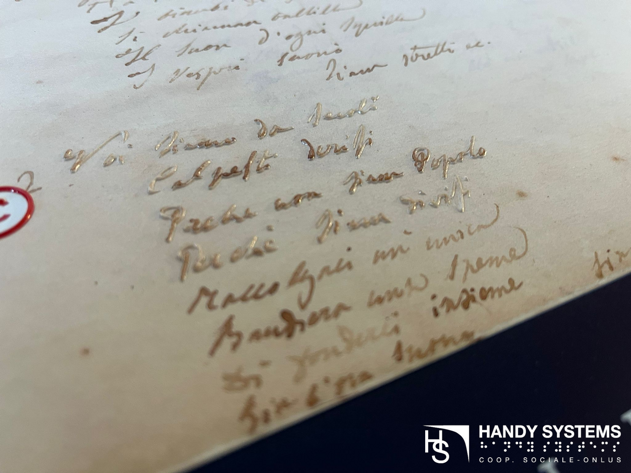 Si chiamin Balilla
Il suon d'ogni squilla
I Vespri suonò
Siam stretti ec.
2 Noi siamo da secoli
Calpesti derisi
Perchè non siam Popolo
Perchè siam divisi
Raccolgaci un'unica
Bandiera una speme
Di fonderci insieme
Già l'ora suonò
HS HANDY SYSTEMS
COOP. SOCIALE-ONLUS